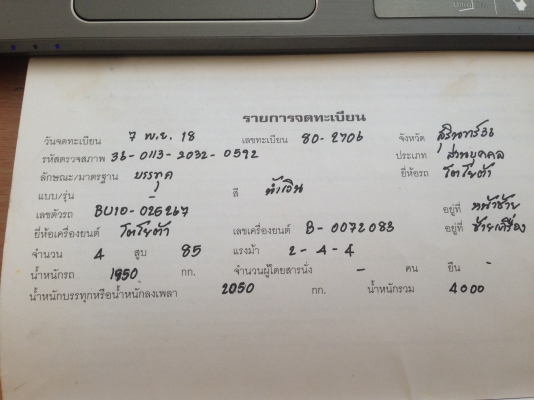 รายการจดทะเบียน
วันจดทะเบียน 7 พ.ย. 18 เลขทะเบียน 80-2706 จังหวัด สุรินทร์ 36
รหัสตรวจสภาพ 36-0113-2032-0592 ประเภท ส่วนบุคคล
ลักษณะ/มาตรฐาน บรรทุก ยี่ห้อรถ โตโยต้า
แบบ/รุ่น - สี น้ำเงิน
เลขตัวรถ BU10-025267 อยู่ที่ หน้าซ้าย
ยี่ห้อเครื่องยนต์ โตโยต้า เลขเครื่องยนต์ B-0072083 อยู่ที่ ซ้ายเครื่อง
จำนวน 4 สูบ 85 แรงม้า 2-4-4
น้ำหนักรถ 1950 กก. จำนวนผู้โดยสารนั่ง - คน ยืน -
น้ำหนักบรรทุกหรือน้ำหนักลงเพลา 2050 กก. น้ำหนักรวม 4000